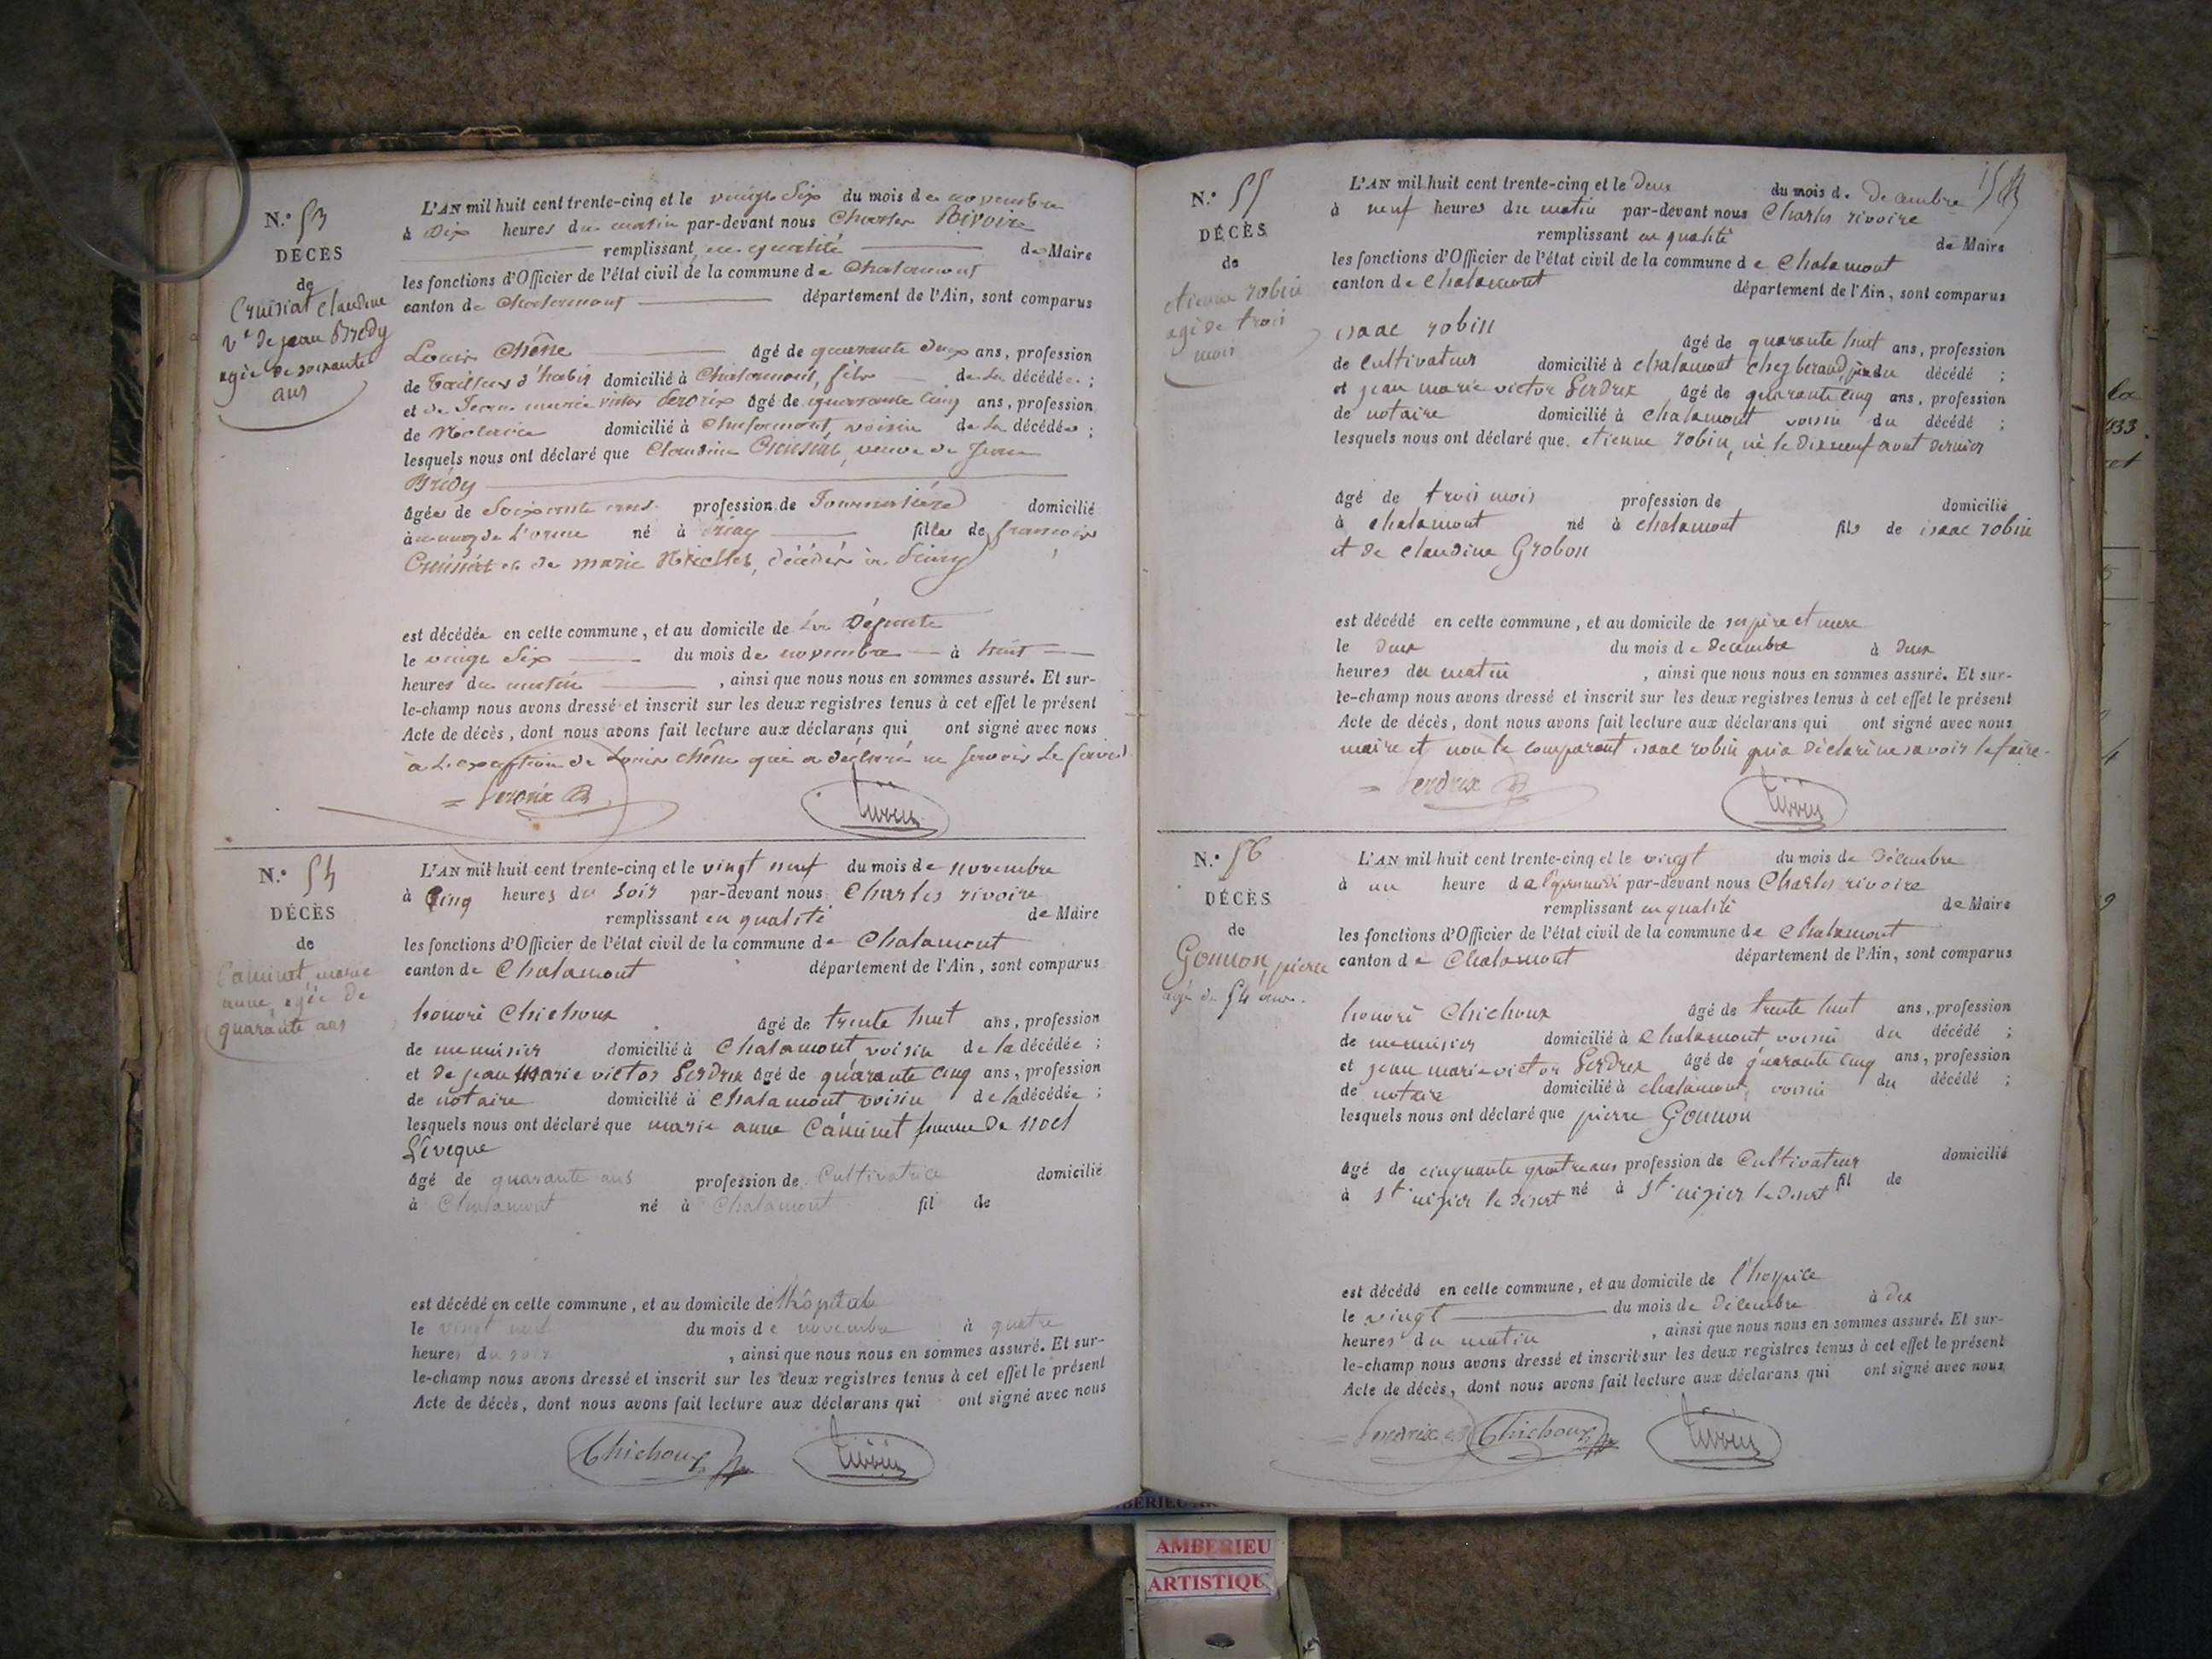 N.° 53
DÉCÈS
de
Cruisiat Claudine
Ve de jean Bredy
agée de soixante
ans
L'AN mil huit cent trente-cinq et le vingt Six du mois de novembre
à Dix heures du matin par-devant nous Charles Rivoire
remplissant en qualité de Maire
les fonctions d'Officier de l'état civil de la commune de Chalamont
canton de Chalamont département de l'Ain, sont comparus
Louis Chêne âgé de quarante deux ans, profession
de Tailleur d'habit domicilié à Chalamont, fils de La décédée ;
et de Jean marie victor Perdrix âgé de quarante Cinq ans, profession
de Notaire domicilié à Chalamont, voisin de La décédée ;
lesquels nous ont déclaré que Claudine Cruisiat, veuve de Jean
Brédy
âgée de Soixante ans profession de domicilié
à né à fille de françois
Cruisiat et de marie décédés à
est décédée en cette commune, et au domicile de La Défunte
le vingt Six du mois de novembre à huit
heures du matin , ainsi que nous nous en sommes assuré. Et sur-
le-champ nous avons dressé et inscrit sur les deux registres tenus à cet effet le présent
Acte de décès, dont nous avons fait lecture aux déclarans qui ont signé avec nous
à L'exception de Louis Chêne qui a déclaré ne Savoir Le faire
Perdrix
N.° 54
DÉCÈS
de
Caminet, marie
anne, agée de
quarante ans
L'AN mil huit cent trente-cinq et le vingt neuf du mois de novembre
à Cinq heures du Soir par-devant nous Charles rivoire
remplissant en qualité de Maire
les fonctions d'Officier de l'état civil de la commune de Chalamont
canton de Chalamont département de l'Ain, sont comparus
honoré Chichoux âgé de trente huit ans, profession
de menuisier domicilié à Chalamont voisin de la décédée ;
et de jean Marie victor Perdrix âgé de quarante Cinq ans, profession
de notaire domicilié à Chalamont voisin de la décédée ;
lesquels nous ont déclaré que marie anne Caminet femme de noel
Lévêque
âgé de quarante ans profession de Cultivatrice domicilié
à Chalamont né à Chalamont fil de
est décédé en cette commune, et au domicile de l'hôpital
le vingt neuf du mois de novembre à quatre
heures du soir , ainsi que nous nous en sommes assuré. Et sur-
le-champ nous avons dressé et inscrit sur les deux registres tenus à cet effet le présent
Acte de décès, dont nous avons fait lecture aux déclarans qui ont signé avec nous
Chichoux
N.° 55
DÉCÈS
de
etienne robin
agé de trois
mois
L'AN mil huit cent trente-cinq et le deux du mois de Décembre
à neuf heures du matin par-devant nous Charles rivoire
remplissant en qualité de Maire
les fonctions d'Officier de l'état civil de la commune de Chalamont
canton de Chalamont département de l'Ain, sont comparus
isaac robin âgé de quarante huit ans, profession
de Cultivateur domicilié à Chalamont chez beraud, père du décédé ;
et jean marie victor Perdrix âgé de quarante cinq ans, profession
de notaire domicilié à Chalamont voisin du décédé ;
lesquels nous ont déclaré que etienne robin, né le dix neuf aout dernier
âgé de trois mois profession de domicilié
à chalamont né à chalamont fils de isaac robin
et de claudine Grobon
est décédé en cette commune, et au domicile de ses père et mere
le deux du mois de decembre à deux
heures du matin , ainsi que nous nous en sommes assuré. Et sur-
le-champ nous avons dressé et inscrit sur les deux registres tenus à cet effet le présent
Acte de décès, dont nous avons fait lecture aux déclarans qui ont signé avec nous
maire et non le comparant isaac robin qui a déclaré ne savoir le faire
Perdrix
N.° 56
DÉCÈS
de
Gounon, pierre
agé de 54 ans
L'AN mil huit cent trente-cinq et le vingt du mois de Décembre
à un heure de l'apresmidi par-devant nous Charles rivoire
remplissant en qualité de Maire
les fonctions d'Officier de l'état civil de la commune de Chalamont
canton de Chalamont département de l'Ain, sont comparus
honoré Chichoux âgé de trente huit ans, profession
de menuisier domicilié à Chalamont voisin du décédé ;
et jean marie victor Perdrix âgé de quarante cinq ans, profession
de notaire domicilié à chalamont, voisin du décédé ;
lesquels nous ont déclaré que pierre Gounon
âgé de cinquante quatre ans profession de Cultivateur domicilié
à St nizier le désert né à St nizier le Désert fil de
est décédé en cette commune, et au domicile de l'hospice
le vingt du mois de Décembre à dix
heures du matin , ainsi que nous nous en sommes assuré. Et sur-
le-champ nous avons dressé et inscrit sur les deux registres tenus à cet effet le présent
Acte de décès, dont nous avons fait lecture aux déclarans qui ont signé avec nous
Perdrix Chichoux
AMBERIEU
ARTISTIQUE